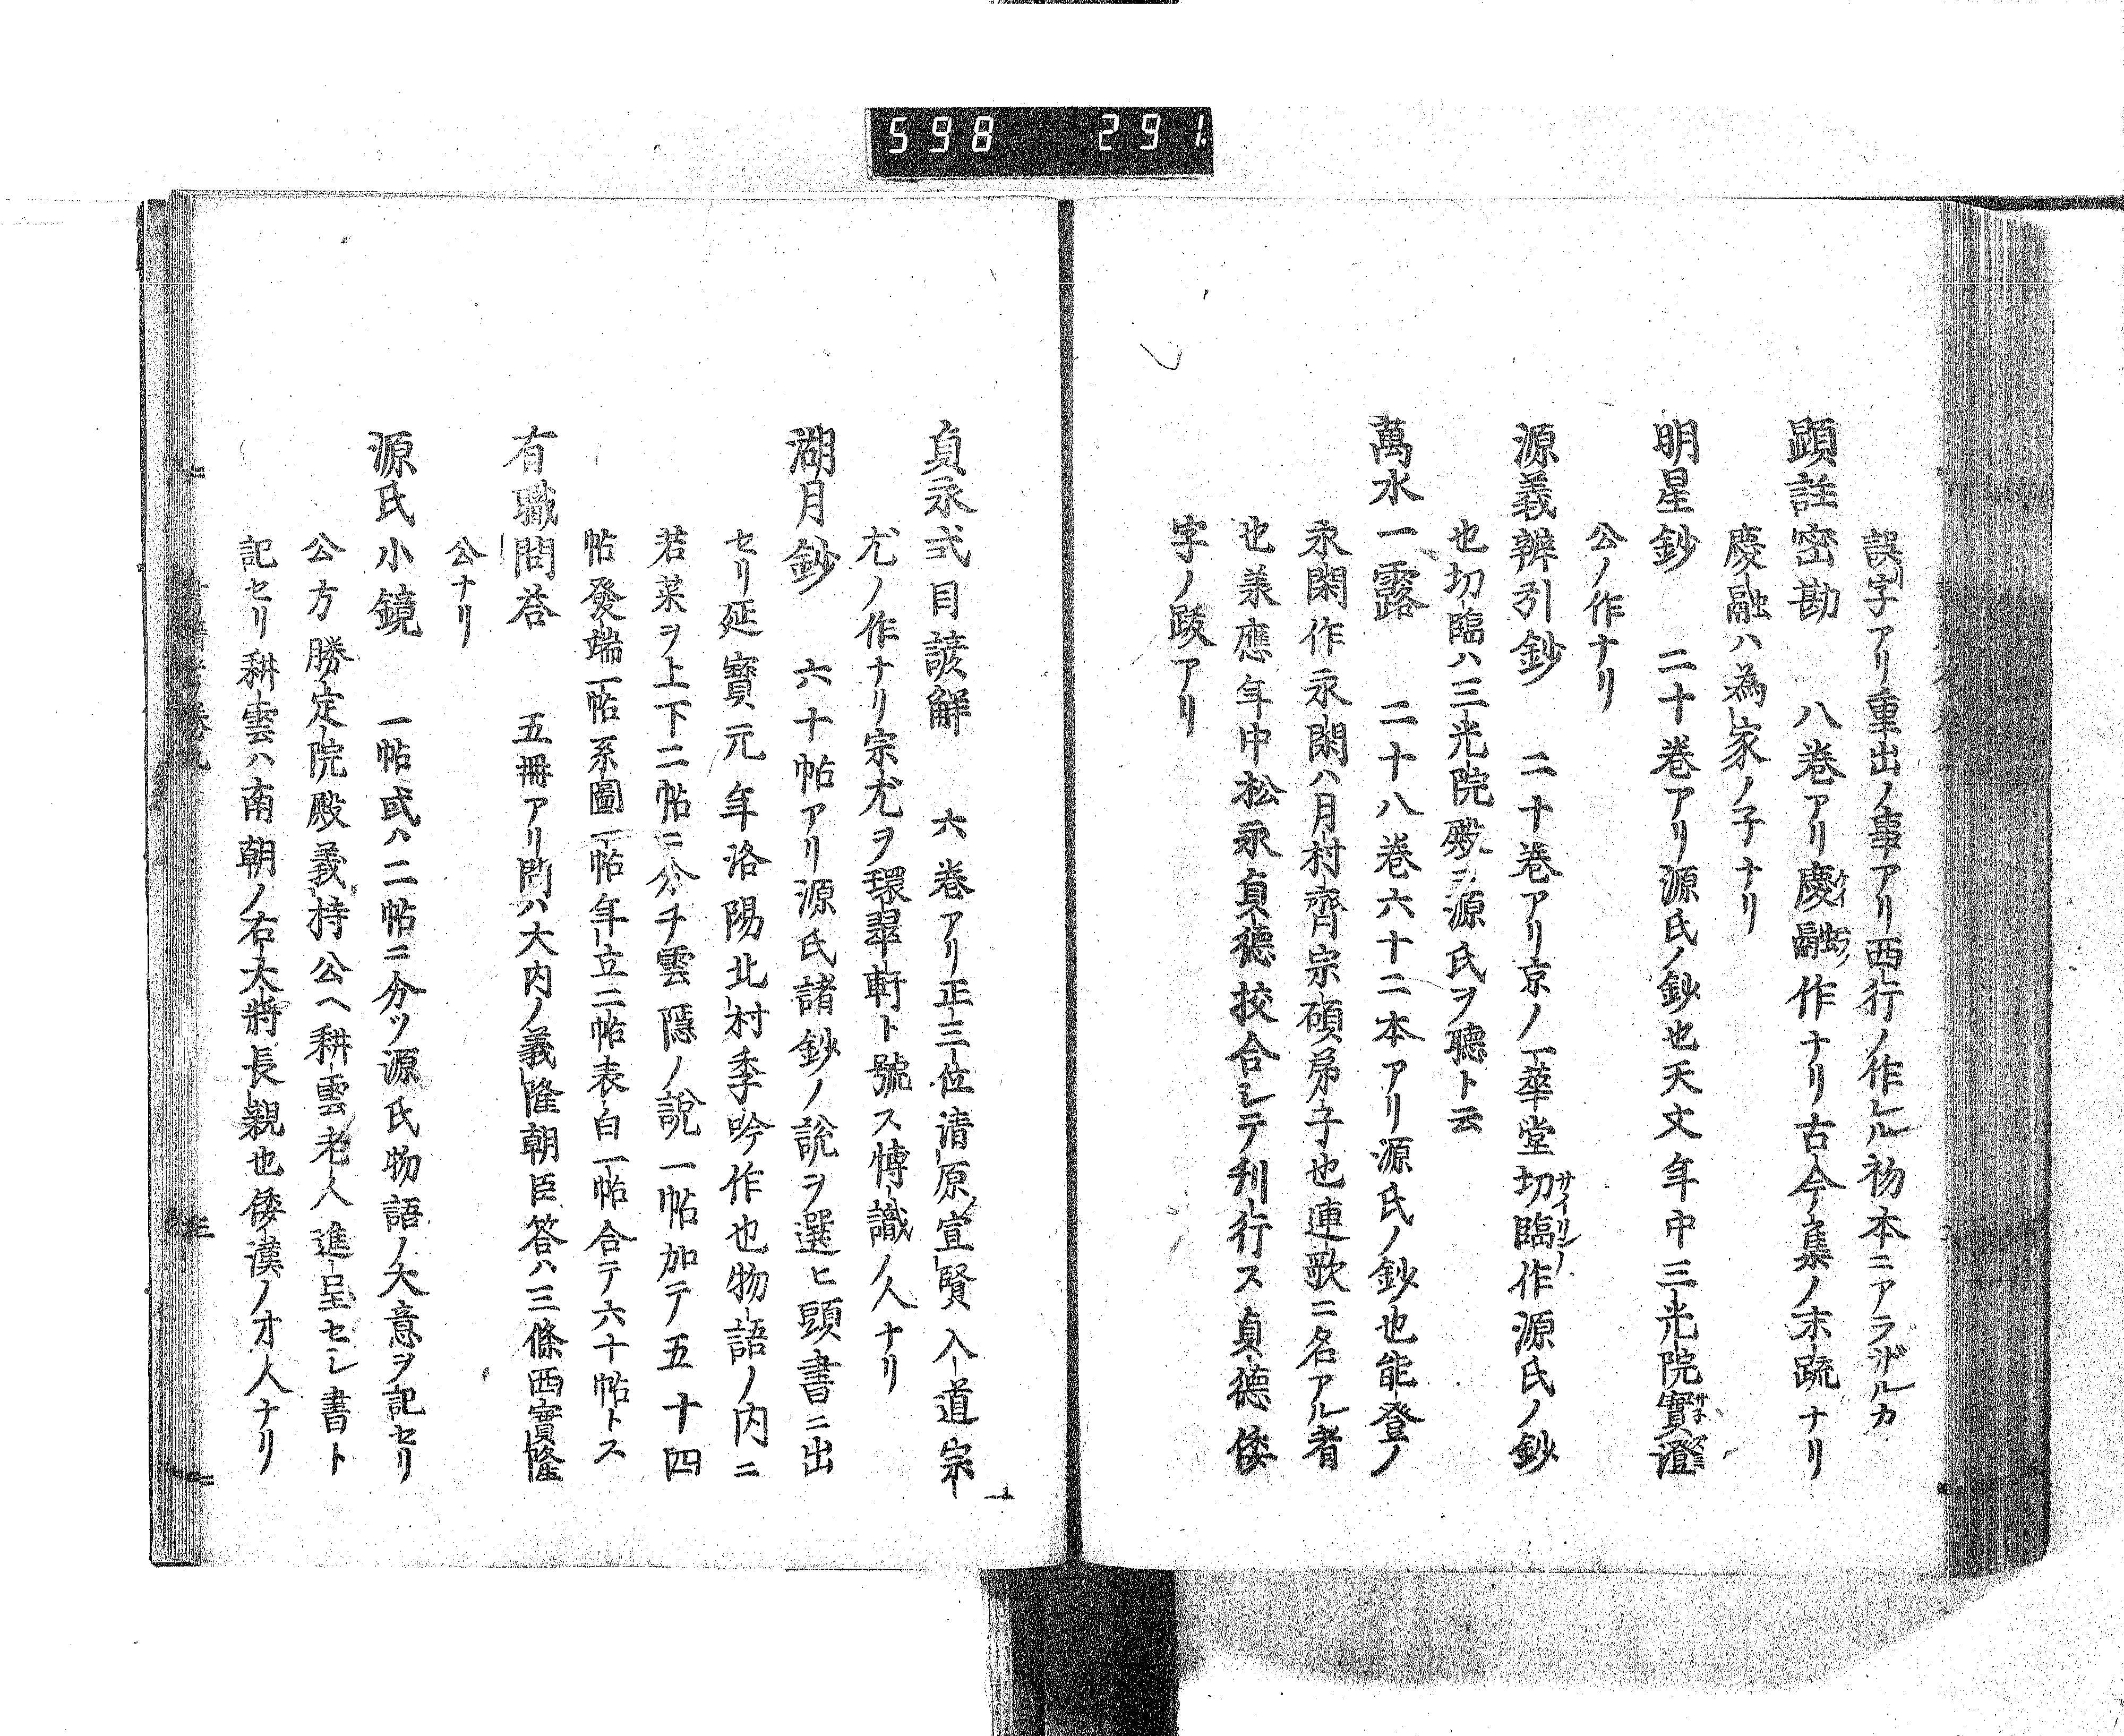 598 291
誤字アリ重出ノ事アリ西行ノ作レル初本ニアラザルカ
顕註密勘 八巻アリ慶融作ナリ古今集ノ末疏ナリ
慶融ハ為家ノ子ナリ
明星鈔 二十巻アリ源氏ノ鈔也天文年中三光院實澄
公ノ作ナリ
源義辨引鈔 二十巻アリ京ノ一華堂切臨作源氏ノ鈔
也切臨ハ三光院殿ニ源氏ヲ聴ト云
萬水一露 二十八巻六十二本アリ源氏ノ鈔也能登ノ
永閑作永閑ハ月村齊宗碩弟子也連歌ニ名アル者
也羕應年中松永貞德挍合シテ刋行ス貞德倭
字ノ跋アリ
貞永式目諺解 六巻アリ正三位清原宣賢入道宗
尤ノ作ナリ宗尤ヲ環翠軒ト號ス博識ノ人ナリ
湖月鈔 六十帖アリ源氏諸鈔ノ說ヲ選ヒ頭書ニ出
セリ延寶元年洛陽北村季吟作也物語ノ内ニ
若菜ヲ上下二帖ニ分チ雲隱ノ說一帖加テ五十四
帖發端一帖系圖一帖年立二帖表白一帖合テ六十帖トス
有職問答 五冊アリ問ハ大内ノ義隆朝臣答ハ三條西實隆
公ナリ
源氏小鏡 一帖或ハ二帖ニ分ツ源氏物語ノ大意ヲ記セリ
公方勝定院殿義持公ヘ耕雲老人進呈セシ書ト
記セリ耕雲ハ南朝ノ右大將長親也倭漢ノ才人ナリ